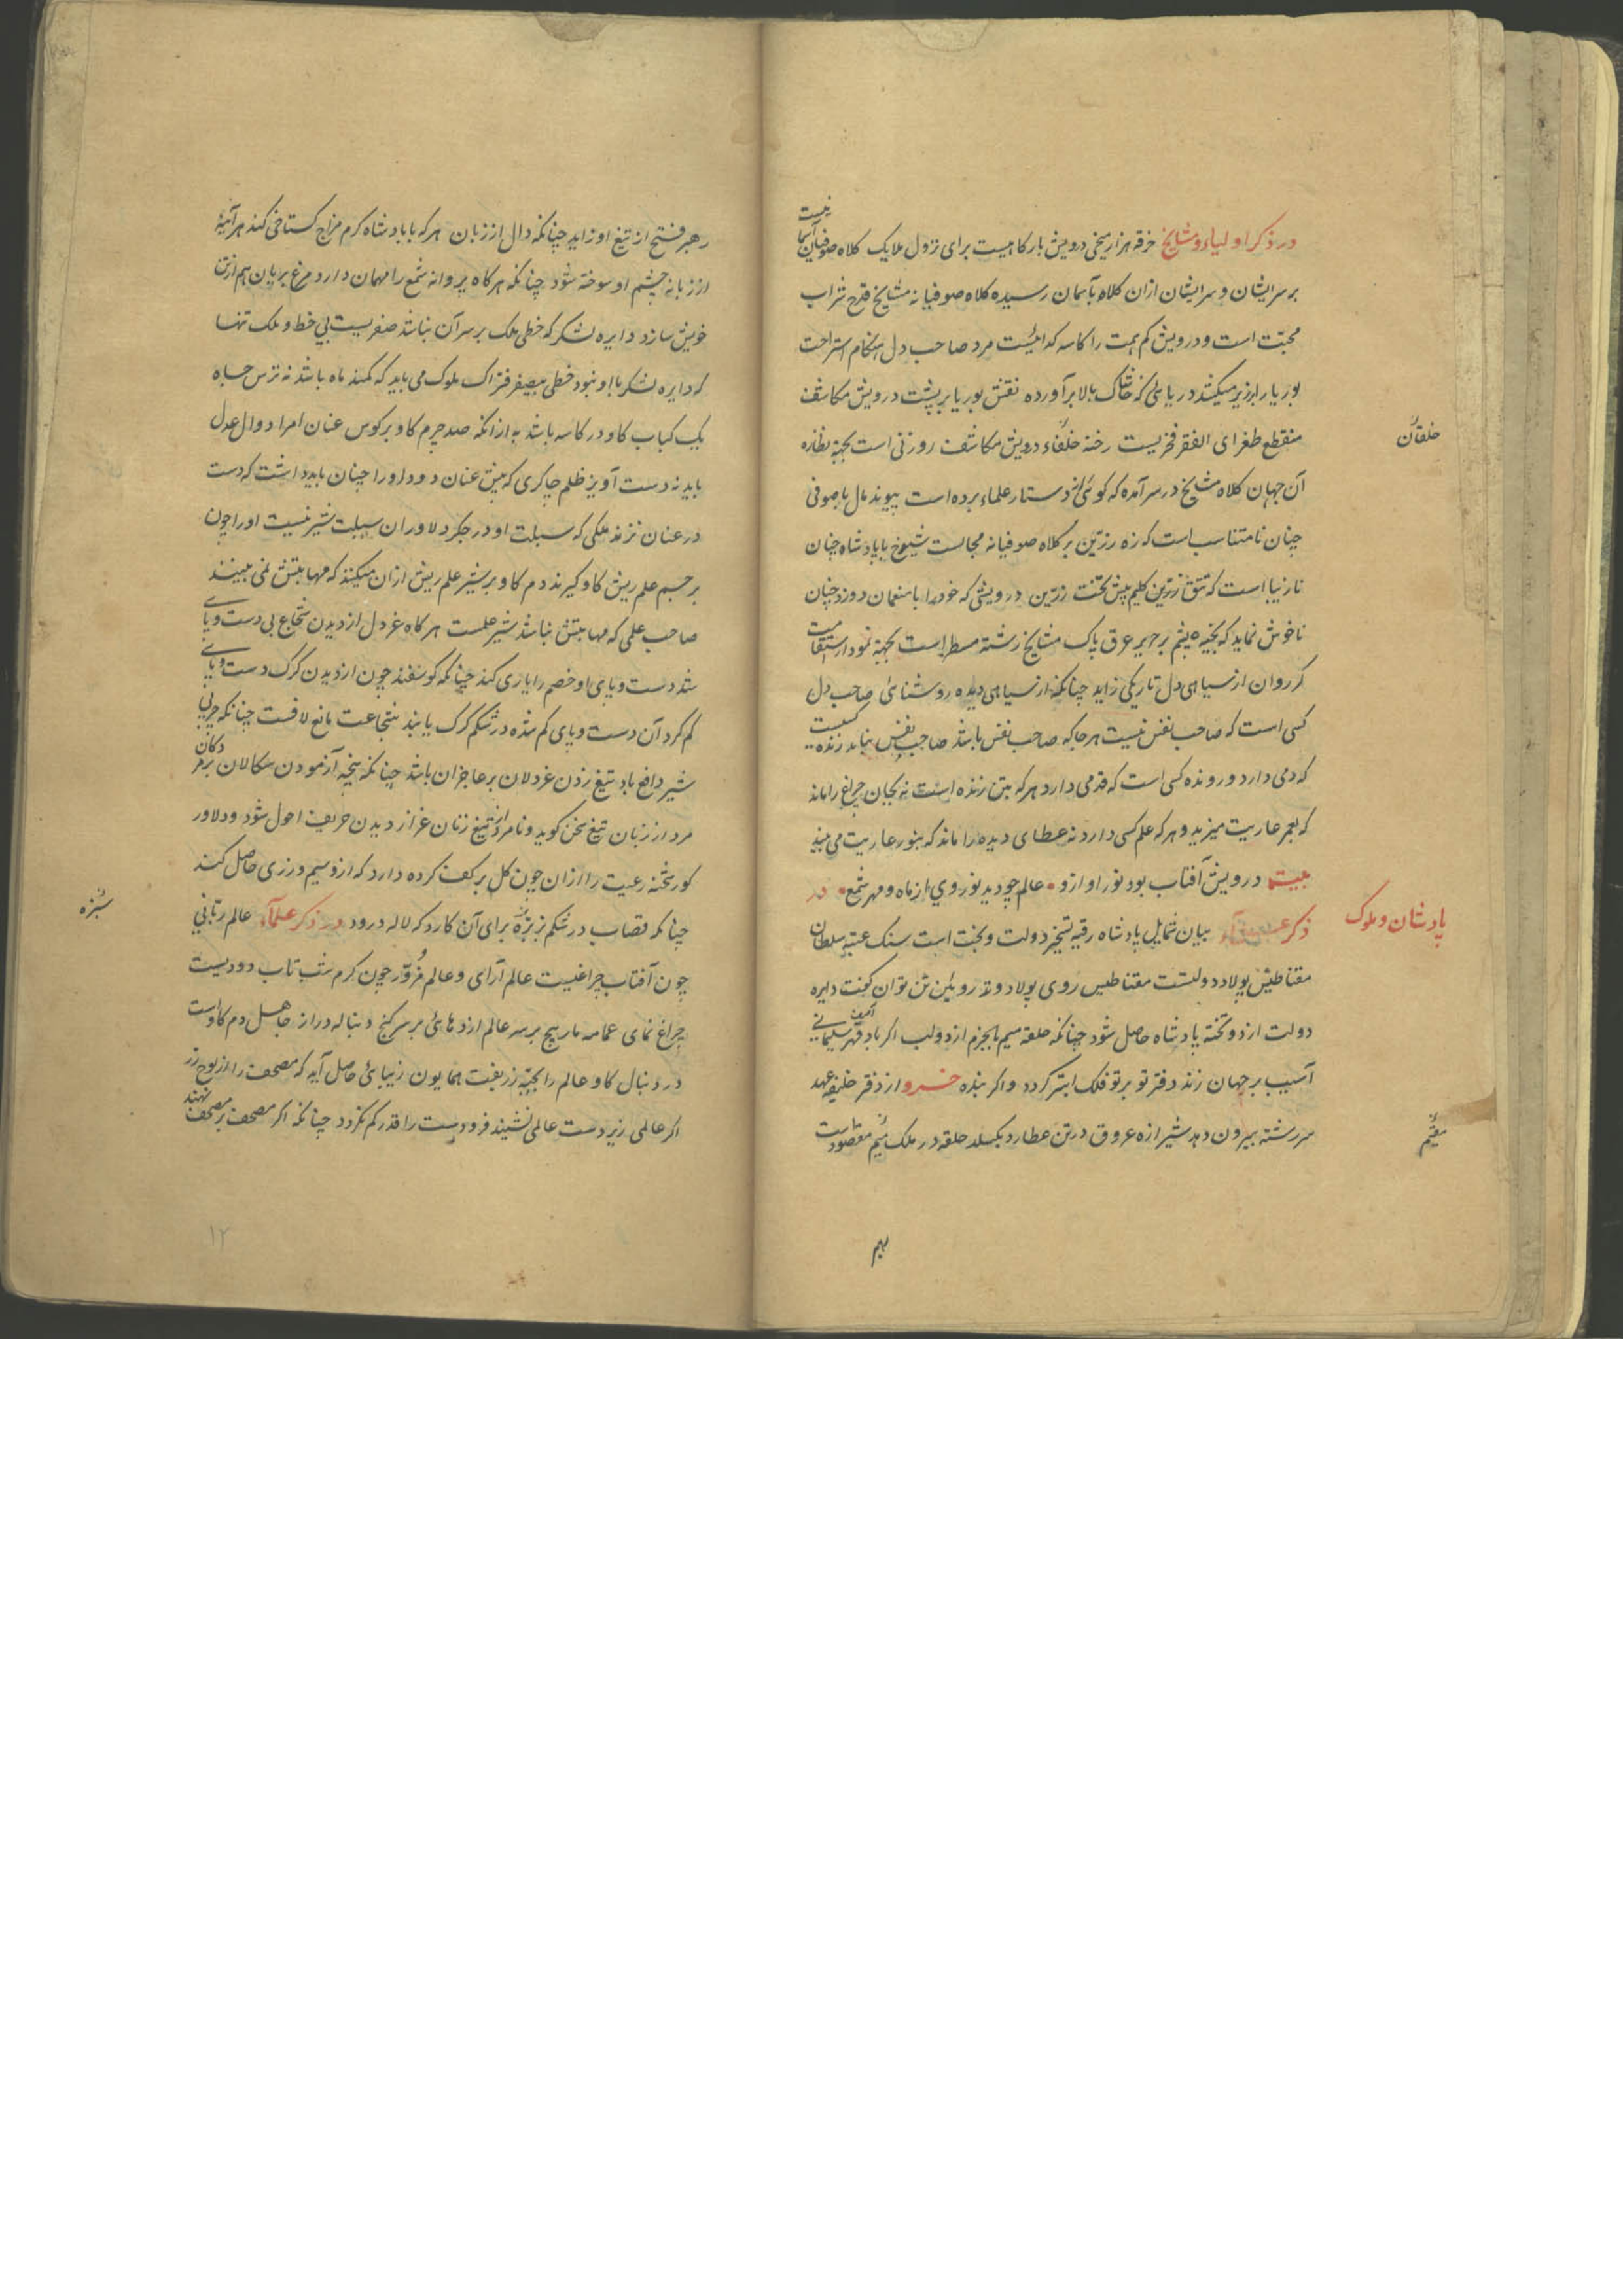 در ذکر اولیاء و مشایخ خرقه هزار میخی درویش بارکاهیست برای نزول ملایک کلاه صوفیان آسما
نیست
بر سرایشان و سرایشان ازان کلاه بآسمان رسیده کلاه صوفیانه مشایخ قدح شراب
محبّت است و درویش کم همت را کاسه کدائیست مرد صاحب دل هنکام استراحت
بوریا را بزیر میکشد دریائی که خاشاک ببالا برآورده نقش بوریا بر پشت درویش مکاشف
منقطع طغرای الفقر فخریست رخنه خلقان درویش مکاشف روزنی است بجهة نظاره
خلقان
آن جهان کلاه مشایخ در سر آمده که کوئی از دستار علماء برده است پیوند مال با صوفی
چنان نامتناسب است که زه زرّین بر کلاه صوفیانه مجالست شیوخ با پادشاه چنان
نازیبا است که تتق زرّین کلیم پیش تخت زرّین درویشی که خود را با منعمان دوزد چنان
ناخوش نماید که بخیه پشم بر حریر عرق پاک مشایخ رشته مسطر است بجهة نمودار استقا
مت
کژروان از سیاهی دل تاریکی زاید چنانکه از سیاهی دیده روشنائی صاحب دل
کسی است که صاحب نفس نیست هر جا که صاحب نفس باشد صاحب نفس نباید زنده
کسیست
که دمی دارد و رونده کسی است که قدمی دارد هر که بتن زنده است نه بجان چراغ را ماند
که بعمر عاریت میزید و هر که علم کسی دارد نه عطای دیده را ماند که بنور عاریت می بیند
بیت درویش آفتاب بود نور او ازو عالم چو دید نور وی از ماه و مهر شمع در
ذکر بیان شمایل پادشاه رقیه تسخیر دولت و بخت است سنک عتبه سلطان
پادشان و ملوک
مقناطیس پولاد دولتست مقناطیس روی پولاد و تذ رویین تن توان کفت دایره
دولت از دو تخته پادشاه حاصل شود چنانکه حلقه میم بالجزم از دو لب اکر باد قهر سلیمانی
آسیب بر جهان زند دفتر تو بر تو فلک ابتر کردد و اکر بنده خسرو از دفتر خلیفه عهد
سر رشته بیرون دهد شیرازه عروق در تن عطارد بکسلد حلقه در ملک میم مقصود است
مقیم
رهبر فتح از تیغ او زاید چنانکه دال از زبان هر که با پادشاه کرم مزاج کستاخی کند هر آینه
از زبانه خشم او سوخته شود چنانکه هر کاه پروانه شمع را مهمان دارد مرغ بریان هم از تن
خویش سازد دایره لشکر که خطی ملک بر سر آن نباشد صفریست بی خط و ملک تنها
که دایره لشکر با او نبود خطی بیصفر فتراک ملوک می باید که کمند ماه باشد نه ترس جاه
یک کباب کاو در کاسه باشد به از انکه صد چرم کاو بر کوس عنان امرا دوال عدل
باید نه دست آویز ظلم چاکری که پیش عنان دود او را چنان باید داشت که دست
در عنان نزند ملکی که سبلت او در جکر دلاوران سبلت شیر نیست او را چون
بر جسم علم ریش کاو کیرند دم کاو بر شیر علم ریش از ان میکنند که مهابتش نمی بینند
صاحب علمی که مهابتش نباشد شیر علمست هر کاه غردل از دیدن شجاع بی دست و پا
شد دست و پای او خصم را یاری کند چنانکه کوسفند چون از دیدن کرک دست و پای
کم کرد آن دست و پای کم شده در شکم کرک یابند شجاعت مانع لافست چنانکه چربی
شیر دافع باد تیغ زدن غردلان بر عاجزان باشد چنانکه پنجه آزمودن سکالان بر در
دکان
مرد از زبان تیغ سخن کوید و نامرد از تیغ زنان غر از دیدن حریف احول شود و دلاور
کور شحنه رعیت را از ان چون کل بر کف کرده دارد که ازو سیم و زری حاصل کند
چنانکه قصاب در شکم بز سبزه برای آن کارد که لاله درود در ذکر علمآء عالم ربّانی
سبزه
چون آفتاب چراغیست عالم آرای و عالم مزوّر چون کرم شب تاب دودیست
چراغ نمای عمامه مار پیچ بر سر عالم اژدهائی بر سر کنج دنباله دراز جاهل دم کاوست
در دنبال کاو عالم را بجبّه زربفت همایون زیبائی حاصل آید که مصحف را از لوح زر
اکر عالمی زیر دست عالمی نشیند فرودست را قدر کم نکردد چنانکه اکر مصحف بر مصحف
نهند
۱۲